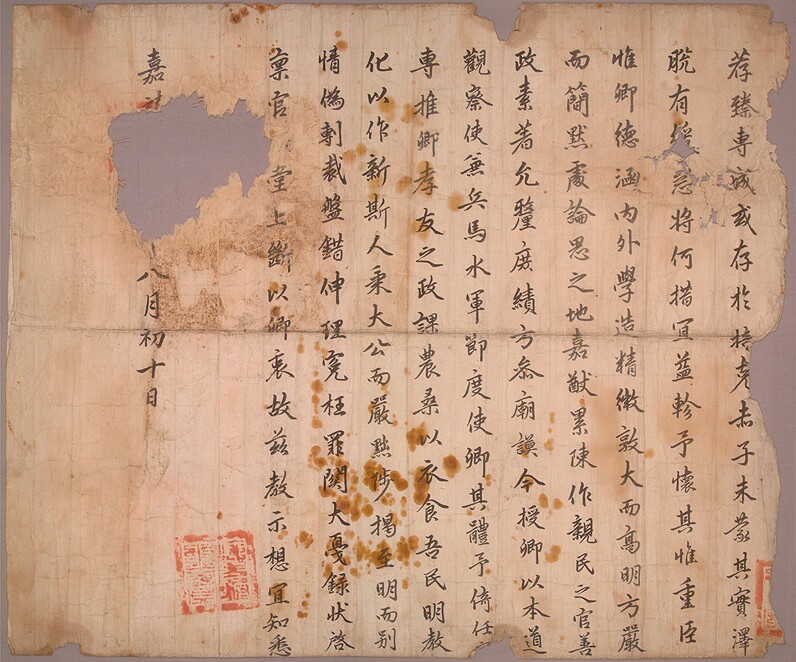 荐臻專城或存於掊克赤子未蒙其實澤
脫有緩急將何措宜益軫予懷其惟重臣
惟卿德涵內外學造精微敦大而高明方嚴
而簡默處論思之地嘉猷累陳作親民之官善
政素著允釐庶績方叅廟謨今授卿以本道
觀察使兼兵馬水軍節度使卿其體予倚任
專推卿孝友之政課農桑以衣食吾民明教
化以作新斯人秉大公而嚴黜陟揭至明而別
情僞剸裁盤錯伸理冤枉罪関大戞錄狀啓
稟官堂上斷以卿衷故茲敎示想宜知悉
嘉
八月初十日